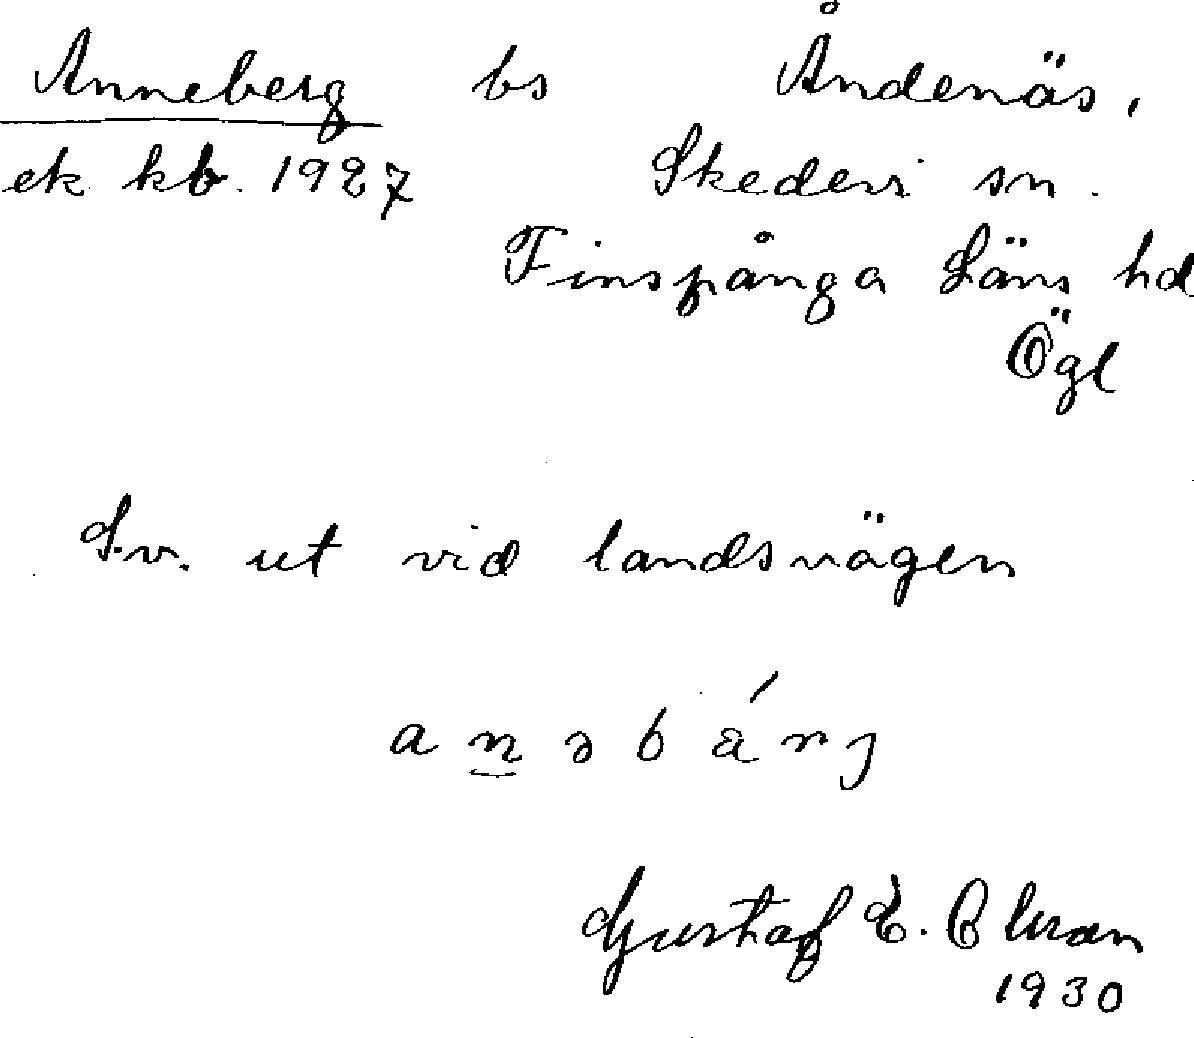 Anneberg bs Åndenäs,
ek kb. 1927 Skedevi sn.
Finspånga Läns hd
Ögl
S.v. ut vid landsvägen
anəbä́rj
Gustaf E.
1930